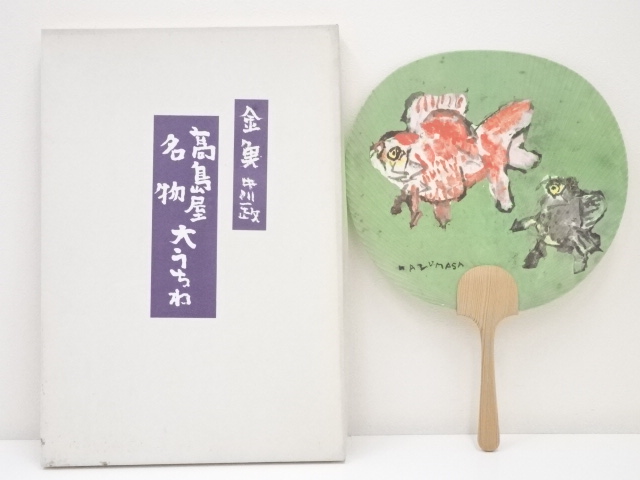 金魚 中川一政
高島屋
名物
大うちわ
KAZUMASA